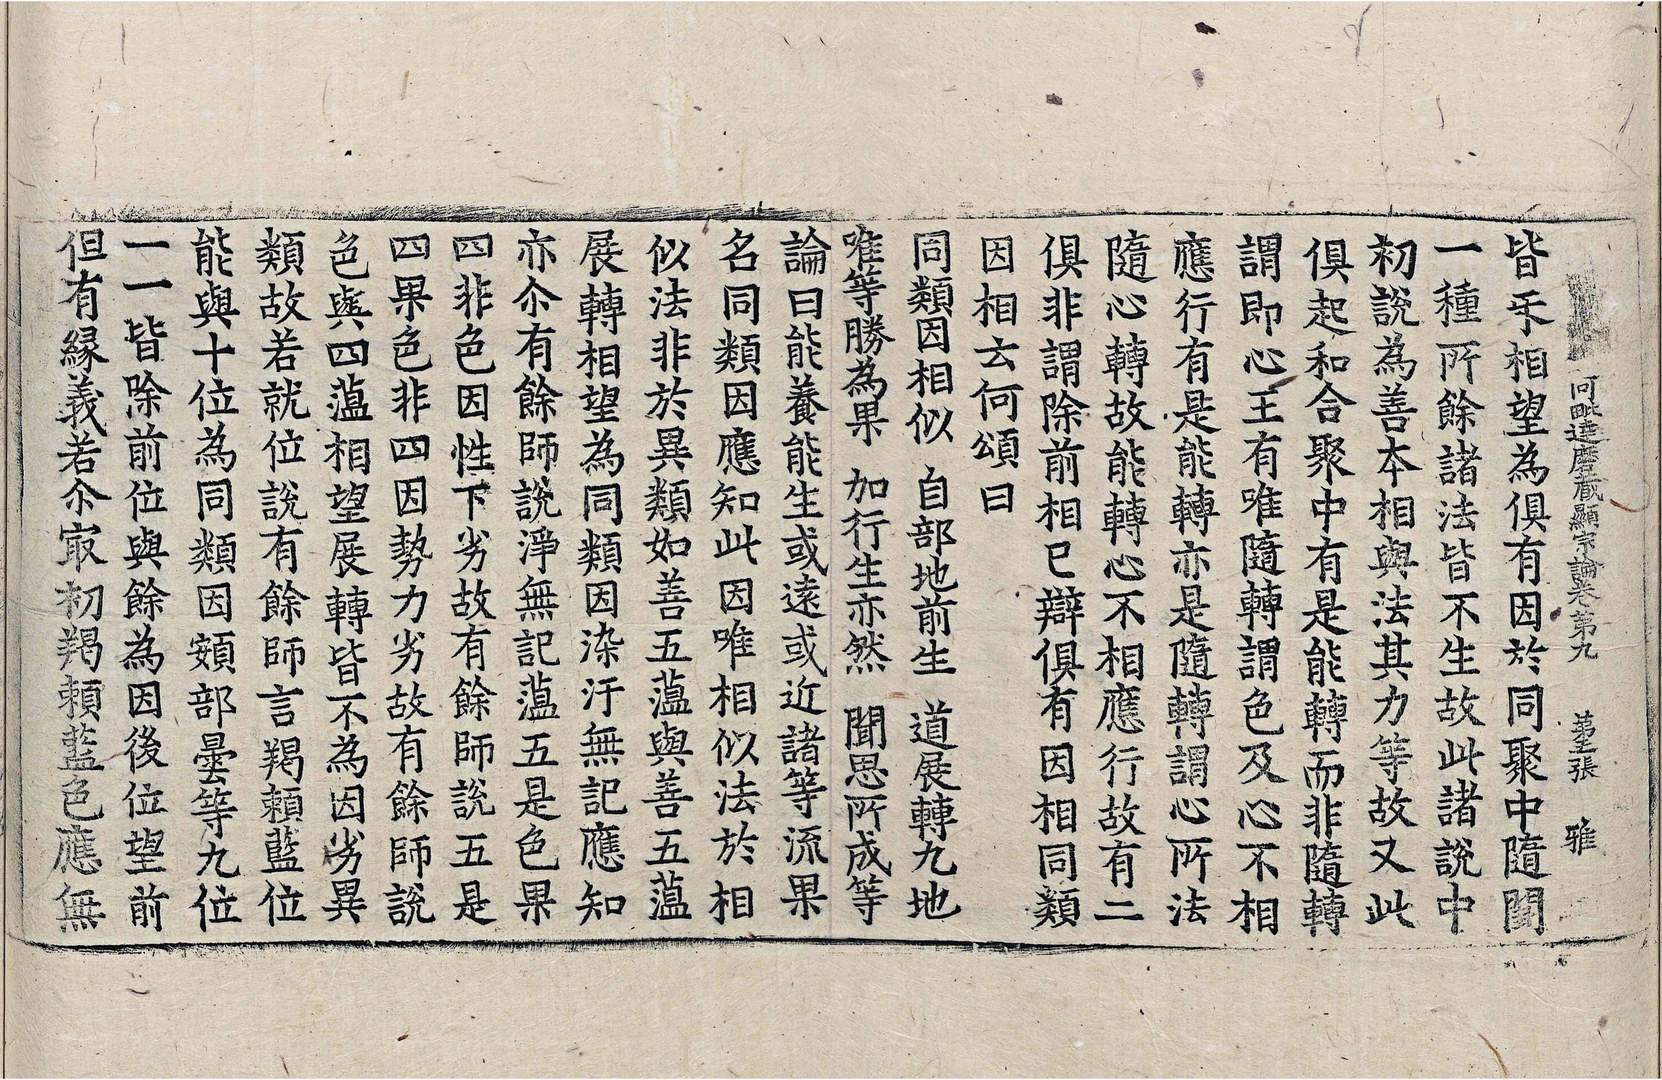 阿毗達磨藏顯宗論卷第九 第五張 雅
皆𠄔相望為俱有因於同聚中隨闕
一種所餘諸法皆不生故此諸說中
初說為善本相與法其力等故又此
俱起和合聚中有是能轉而非隨轉
謂即心王有唯隨轉謂色及心不相
應行有是能轉亦是隨轉謂心所法
隨心轉故能轉心不相應行故有二
俱非謂除前相已辯俱有因相同類
因相云何頌曰
同類因相似 自部地前生 道展轉九地
唯等勝為果 加行生亦然 聞思所成等
論曰能養能生或遠或近諸等流果
名同類因應知此因唯相似法於相
似法非於異類如善五蘊與善五蘊
展轉相望為同類因染汙無記應知
亦尒有餘師說淨無記蘊五是色果
四非色因性下劣故有餘師說五是
四果色非四因勢力劣故有餘師說
色與四蘊相望展轉皆不為因劣異
類故若就位說有餘師言羯賴藍位
能與十位為同類因頞部曇等九位
一一皆除前位與餘為因後位望前
但有緣義若尒㝡初羯賴藍色應無